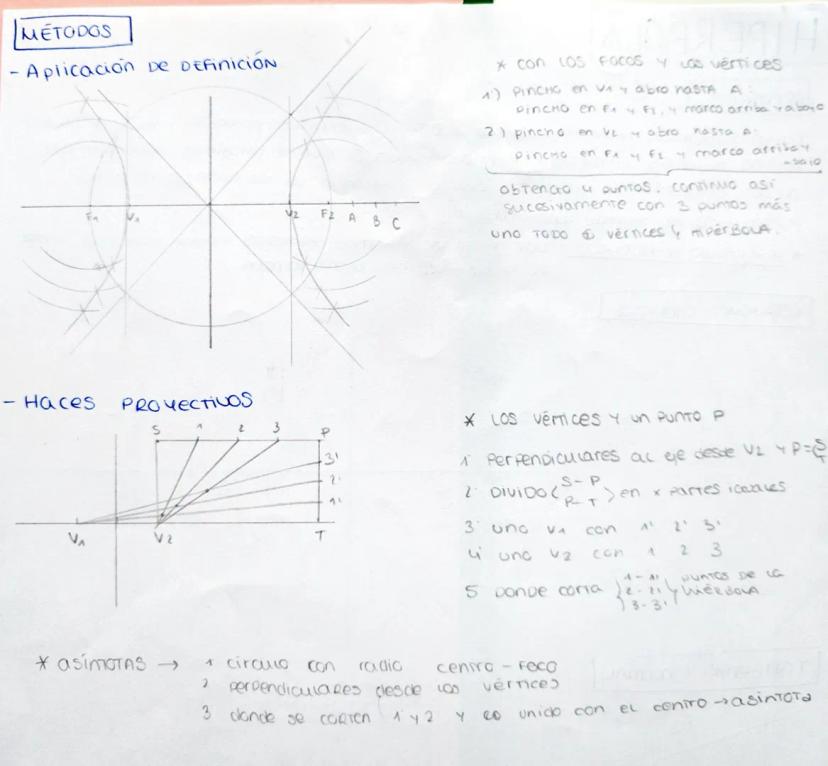 MÉTODOS
- Aplicación DE DEFINICIÓN
F1 V1 V2 F2 A B C
* CON LOS FOCOS Y LOS VÉRTICES
1') PINCHO en V1 y abro hasta A:
PINCHO en F1 y F2, y marco arriba y abajo
2) PINCHO en V2 y abro hasta A:
PINCHO en F1 y F2 y marco arriba y
abajo
OBTENGO 4 PUNTOS, CONTINUO ASÍ
SUCESIVAMENTE CON 3 PUNTOS MÁS
UNO TODO VÉRTICES HIPÉRBOLA.
- HACES PROYECTIVOS
S 1 2 3 P
3'
2'
1'
V1 V2 T
* LOS VÉRTICES Y UN PUNTO P
1' PERPENDICULARES AL EJE desde V2 Y P = S T
2' DIVIDO (S-P
R-T) en x PARTES IGUALES
3' UNO V1 CON 1' 2' 3'
4' UNO V2 CON 1 2 3
5 DONDE CORTA 1-1' PUNTOS DE LA
2-2'
3-3'
* ASÍMOTAS → 1 CÍRCULO CON RADIO CENTRO-FOCO
2 PERPENDICULARES desde LOS VÉRTICES
3 donde SE CORTEN 1 Y 2 Y LO UNIDO CON EL CENTRO → ASÍNTOTA